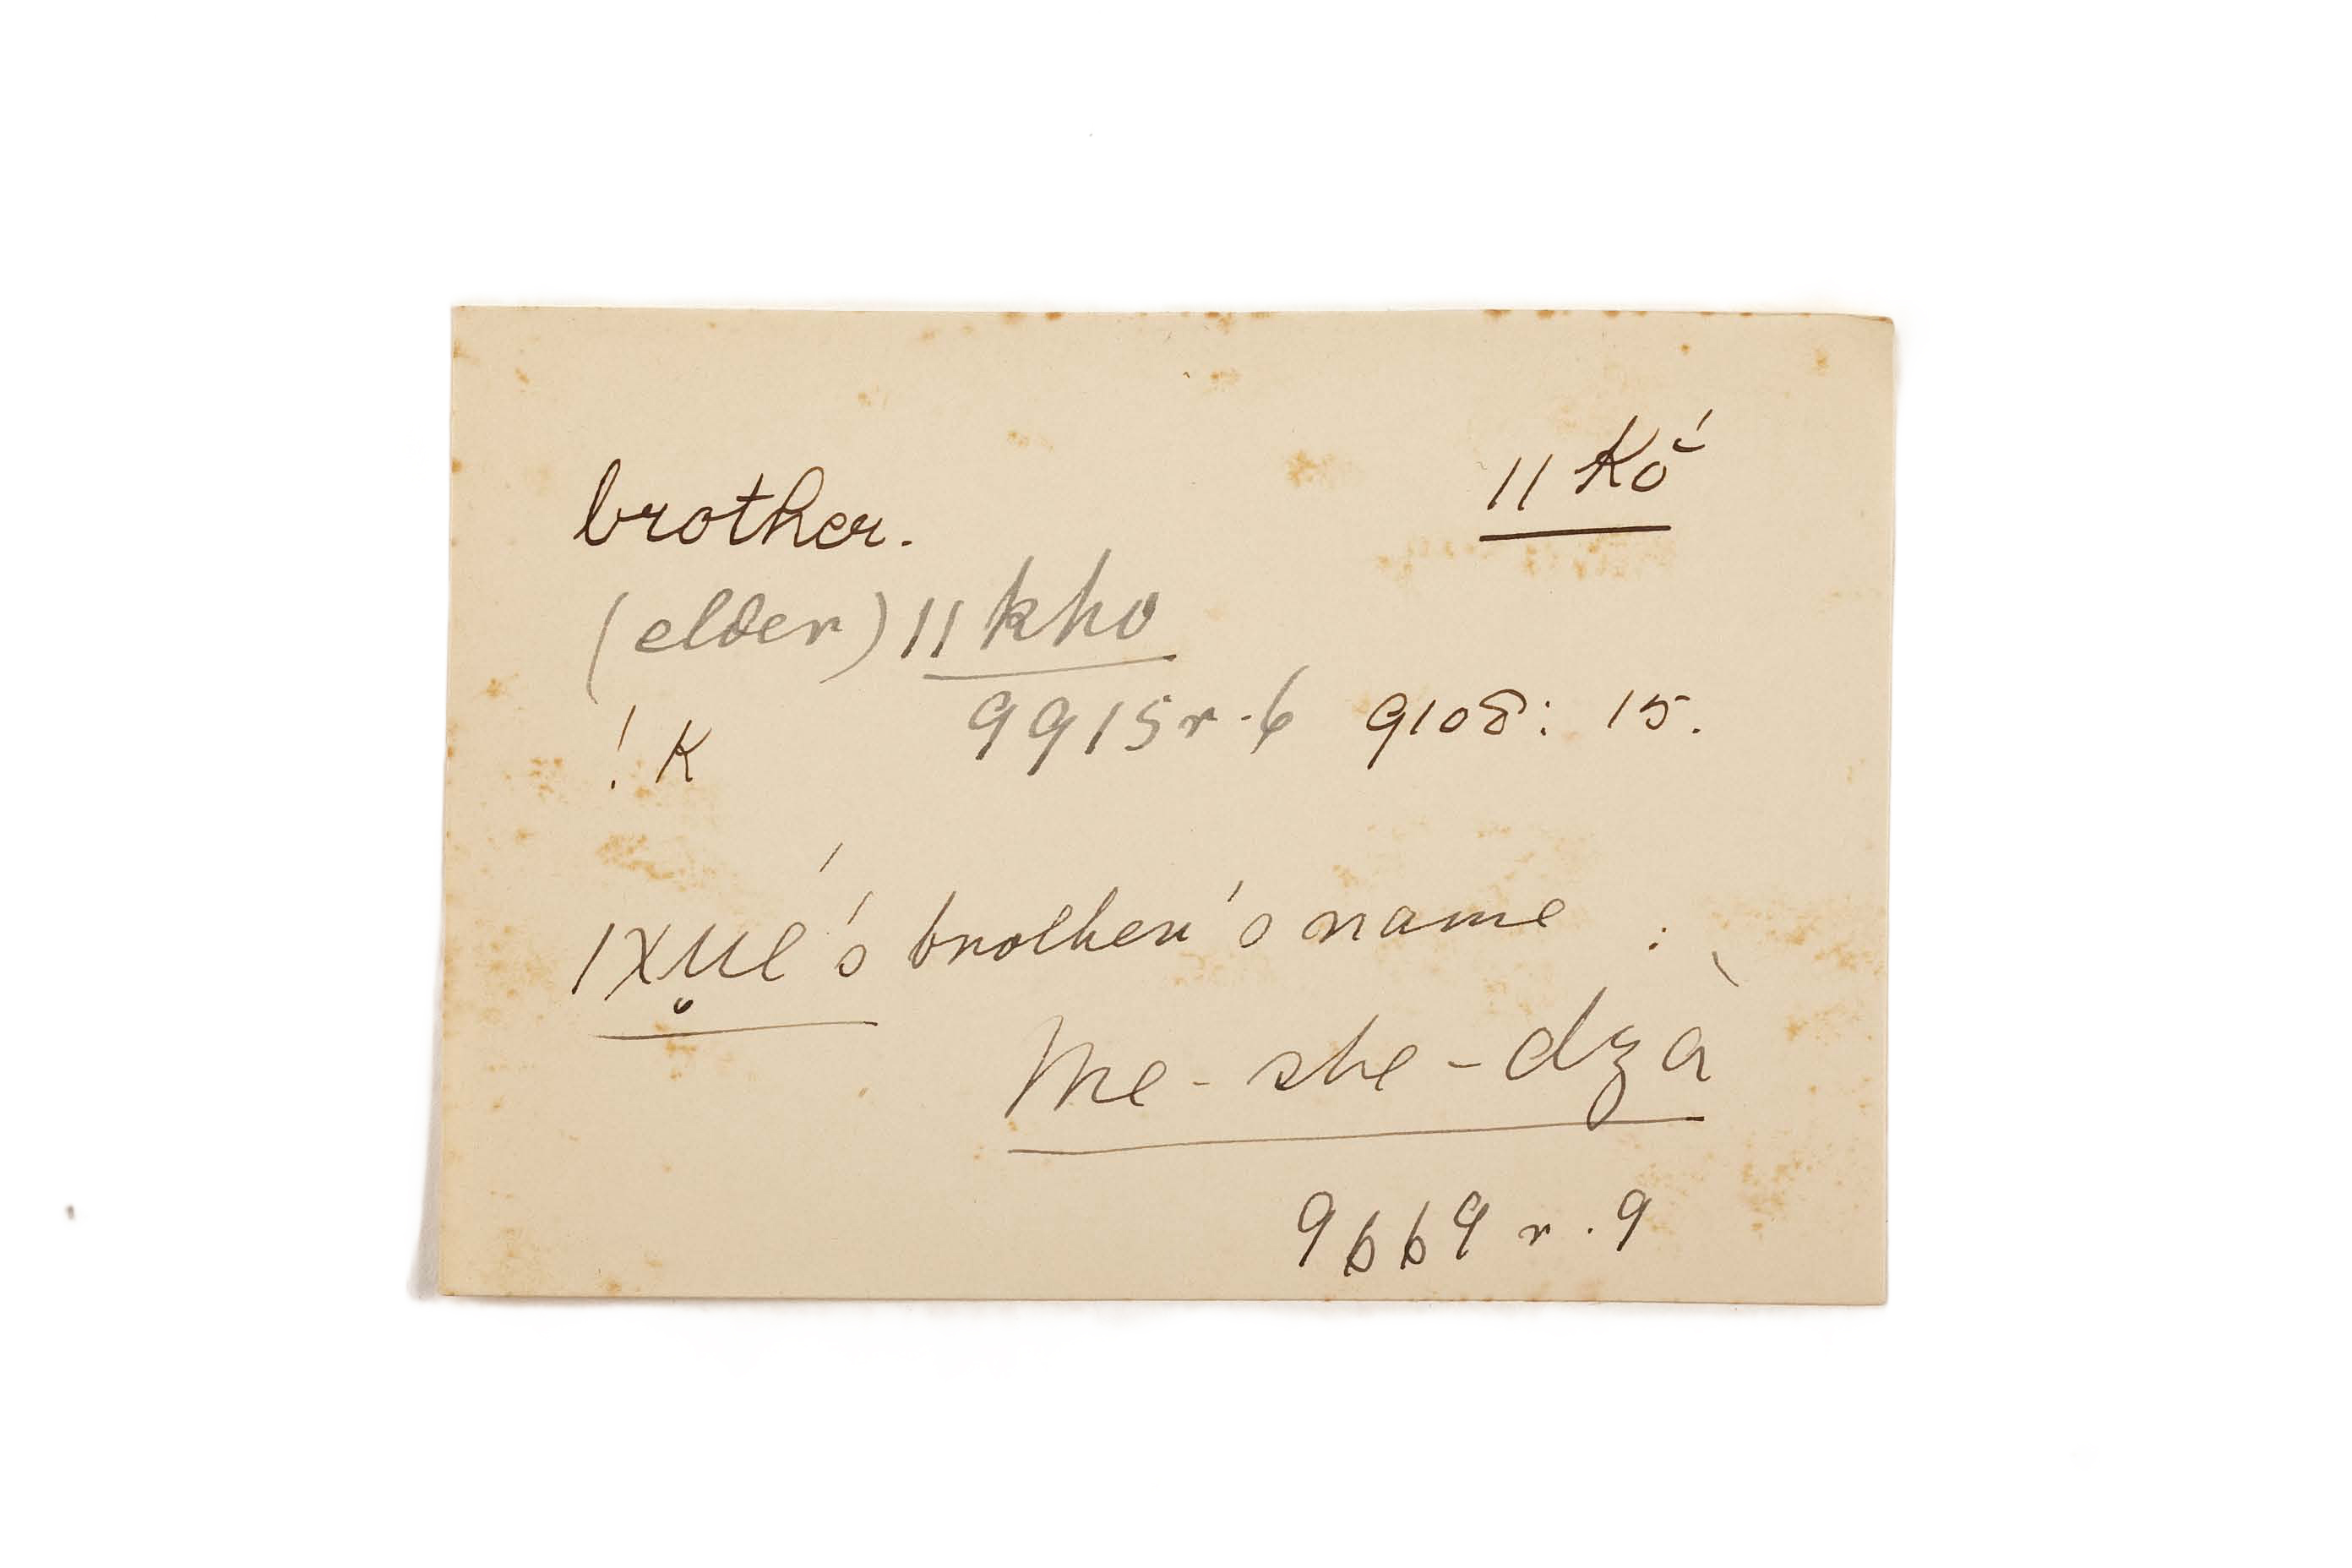 brother. ǁKŏ́
(elder) ǁkho
9915r.6 9108: 15.
! K
ǀxu̥é's brother's name :
Me-she-dzà
9669 r. 9